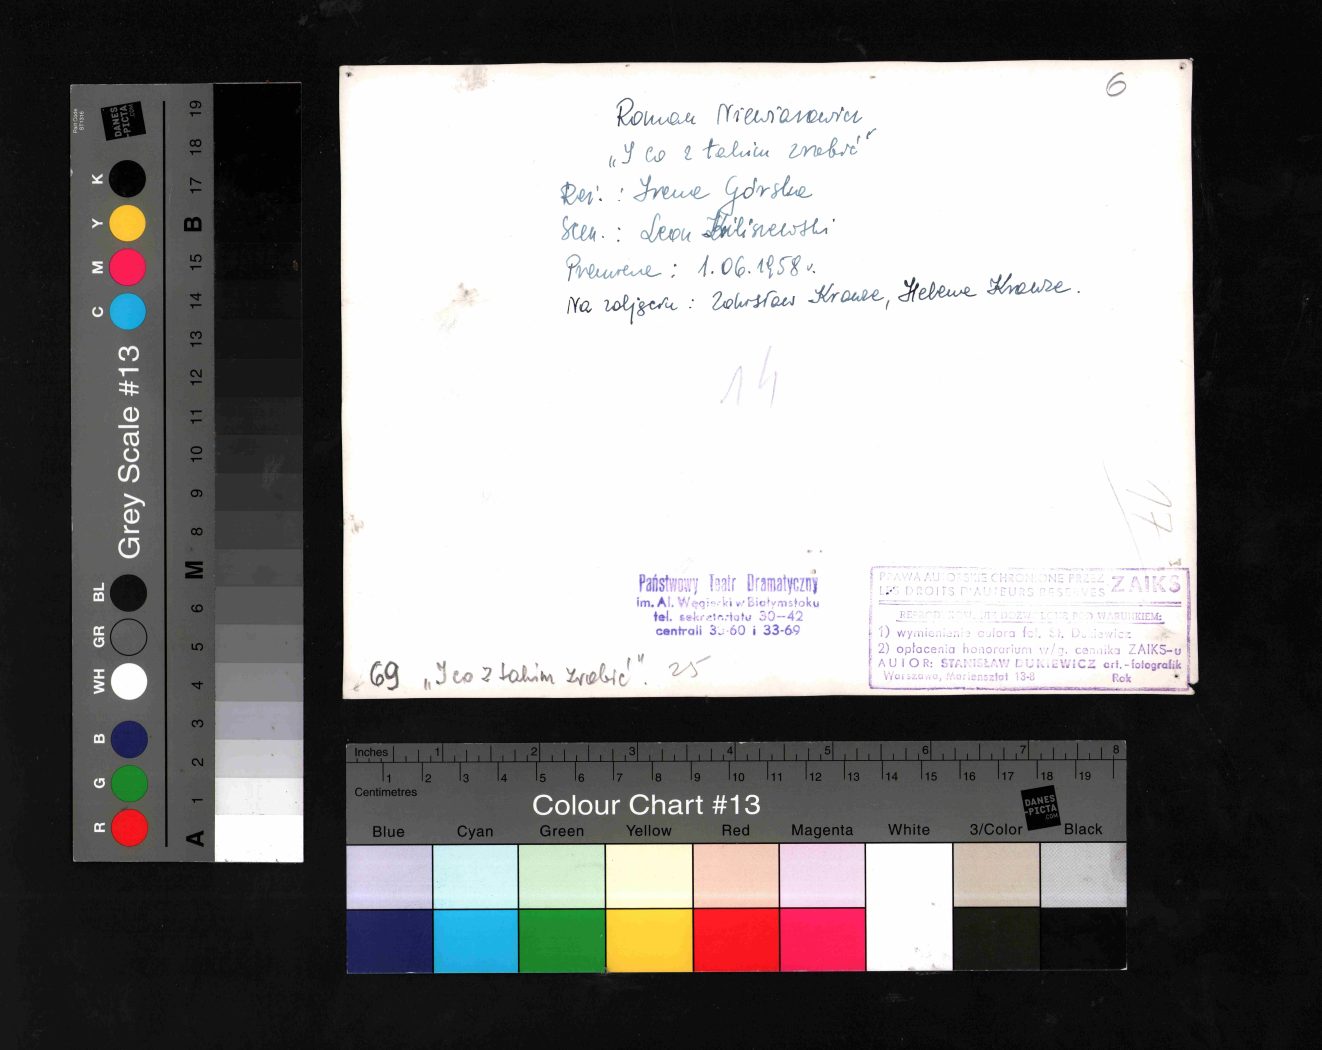 6
Roman Niewiarowicz
„I co z takim zrobić"
Reż. : Irena Górska
Scen. : Leon
Premiera : 1.06.1958 r.
Na zdjęciu : Zdzisław Krauze, Helena Krauze.
14
17
Państwowy Teatr Dramatyczny
im. Al. Węgierki w Białymstoku
tel. sekretariatu 30-42
centrali 33-60 i 33-69
PRAWA AUTORSKIE CHRONIONE PRZEZ ZAIKS
LES DROITS D'AUTEURS RESERVES
REPRODUKOWANIE DOZWOLONE POD WARUNKIEM:
1) wymienienia autora fot. St. Dukiewicz
2) opłacenia honorarium w/g. cennika ZAIKS-u
AUTOR: STANISŁAW DUKIEWICZ art.-fotografik
Warszawa, Mariensztat 13-8 Rok
69 „I co z takim zrobić". 25
Grey Scale #13
DANES-PICTA.COM
K Y M C
BL GR WH B G R
A 1 2 3 4 5 6 M 8 9 10 11 12 13 14 15 B 17 18 19
Inches 1 2 3 4 5 6 7 8
1 2 3 4 5 6 7 8 9 10 11 12 13 14 15 16 17 18 19
Centimetres
Colour Chart #13
DANES-PICTA.COM
Blue Cyan Green Yellow Red Magenta White 3/Color Black